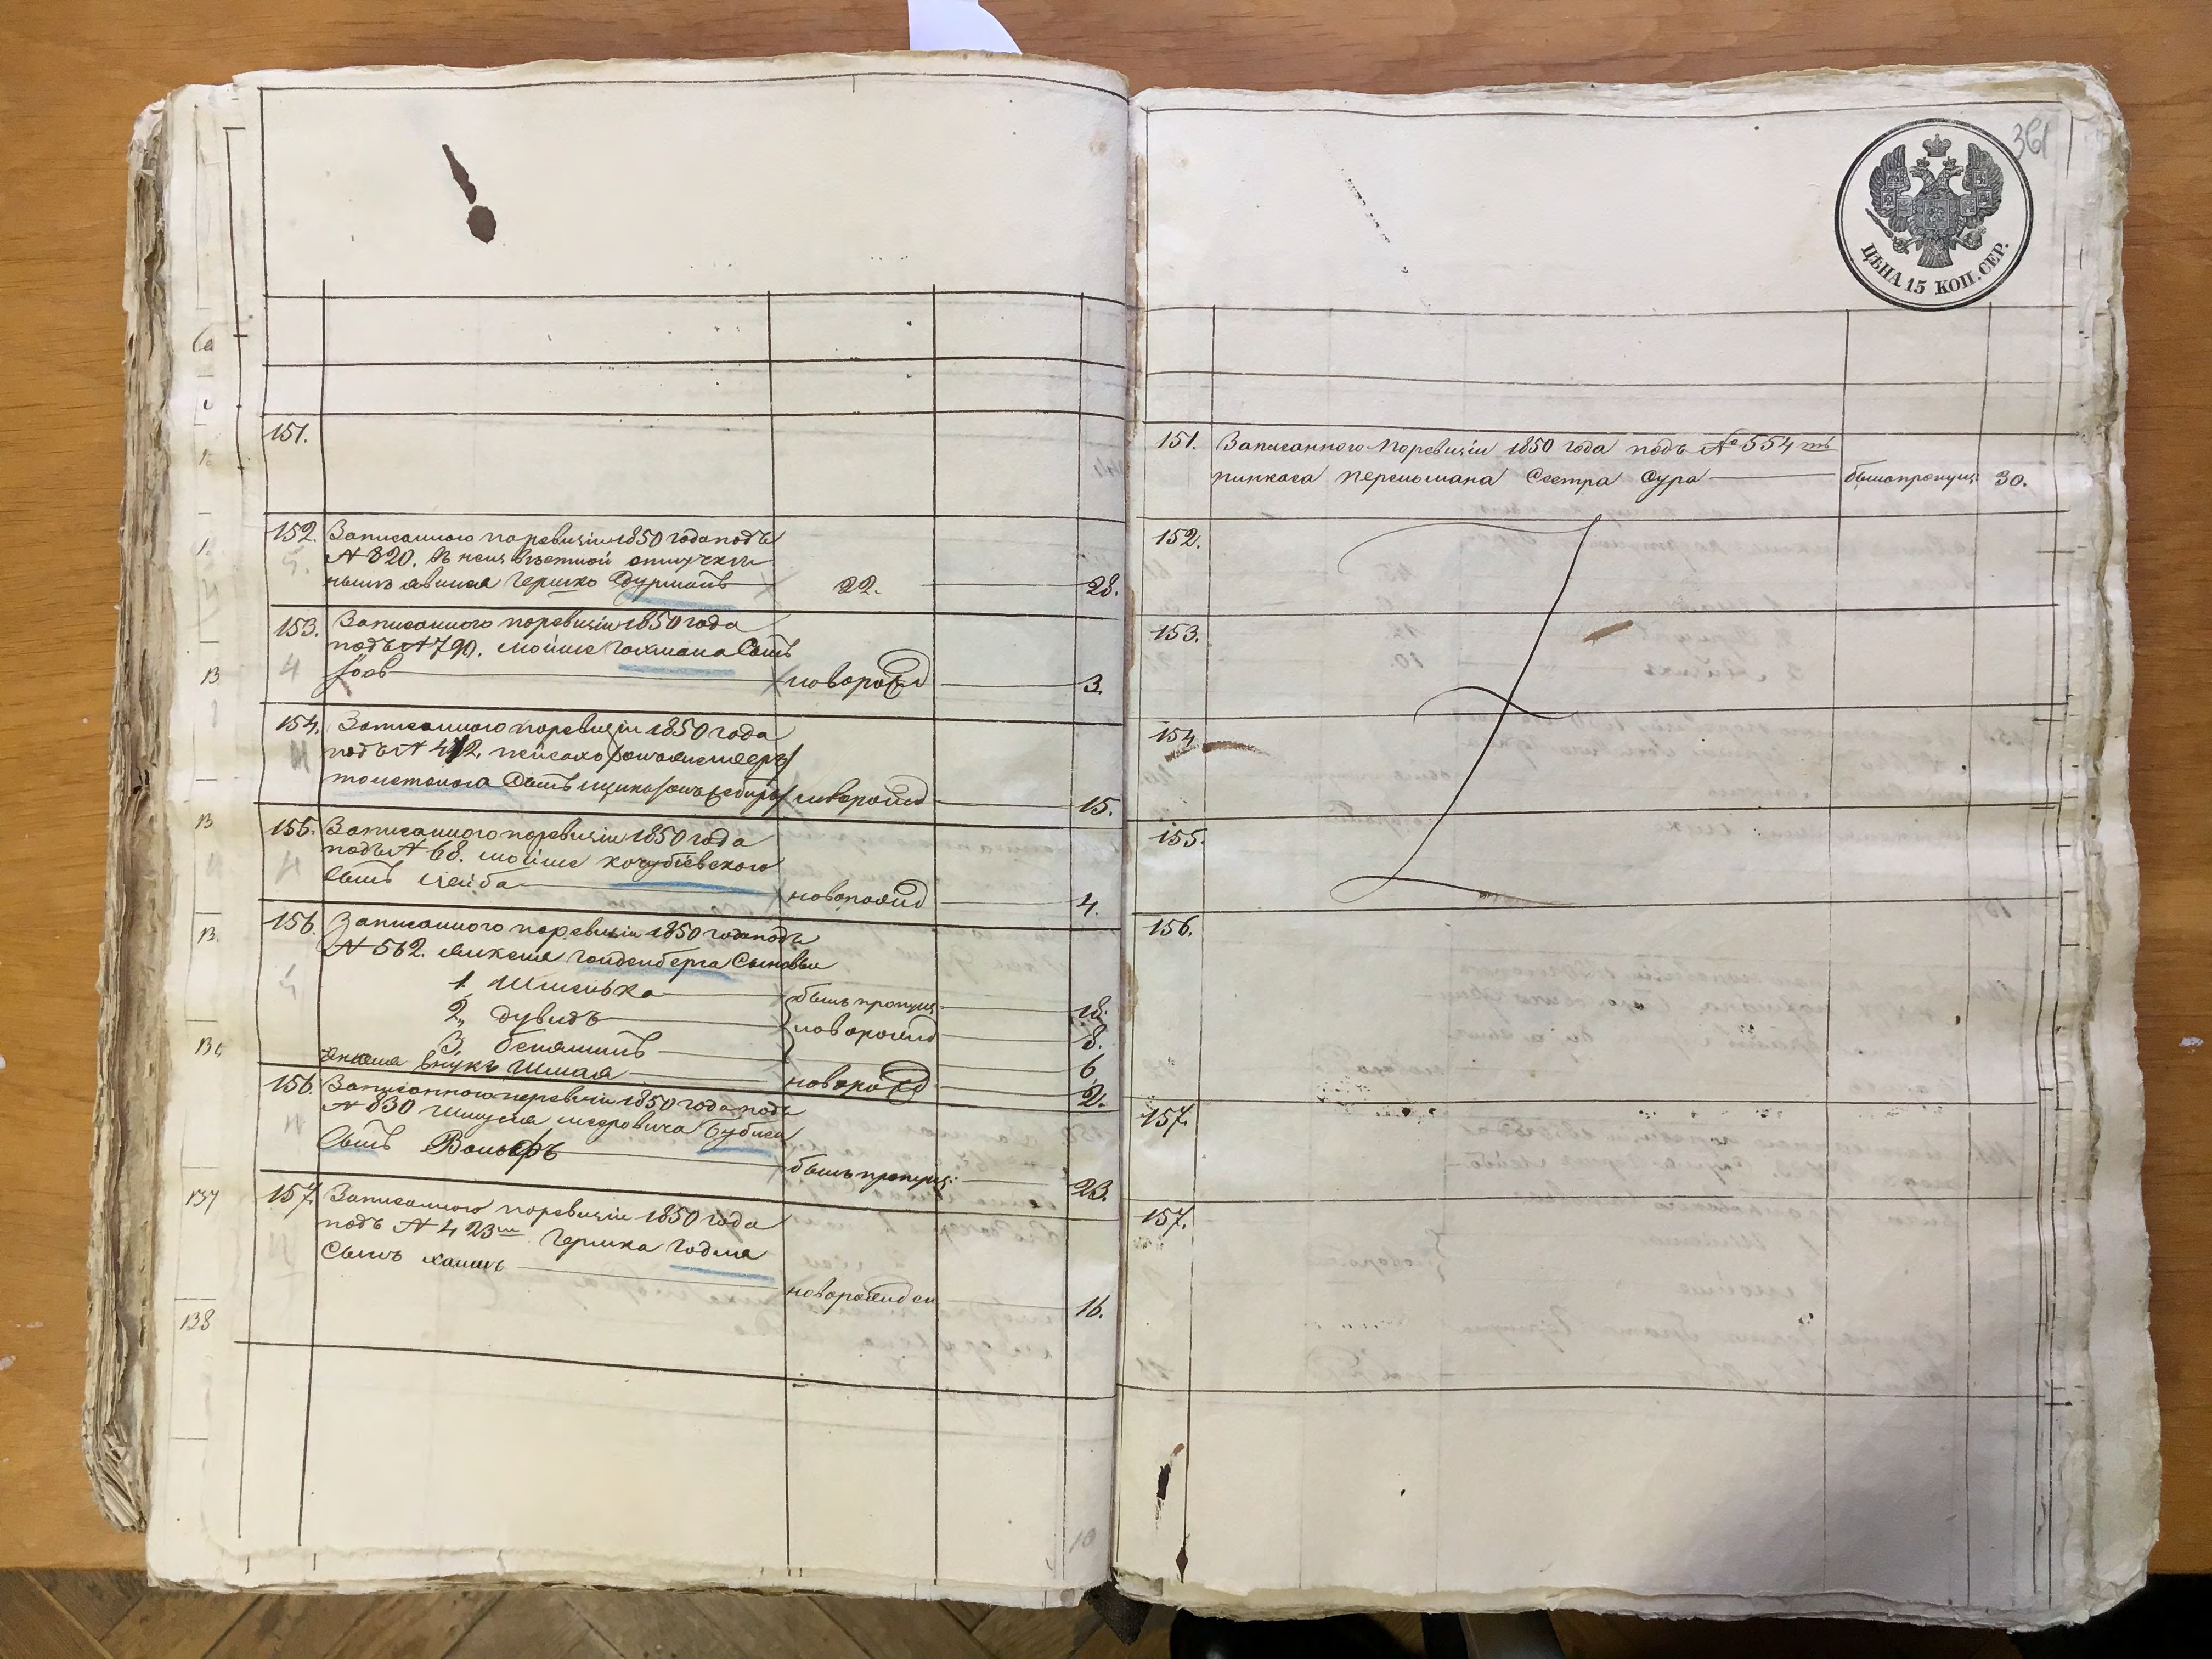 361
ЦѢНА 15 КОП. СЕР.
151.
152. Записанного по ревизіи 1850 года подъ
№ 820. въ неизвѣстной отлучки
нынѣ явился Гершко Фурманъ 22. 28.
153. Записанного по ревизіи 1850 года
подъ № 790. Мойше Гохмана Сынъ
Іоев новорожд 3.
154. Записанного по ревизіи 1850 года
подъ № 412.
толстонога Сынъ новорожд 15.
155. Записанного по ревизіи 1850 года
подъ № 68. Мойше Кочубіевского
Сынъ Лейба новорожд 4.
156. Записанного по ревизіи 1850 года подъ
№ 562. Янкеля Гольденберга Сыновья
1. былъ пропущ 18.
2„ Дувидъ новорожд 8.
3 Бенялинъ 6
Янкеля внукъ Шмая новорожд 2.
156. Записанного по ревизіи 1850 года подъ
№ 830 Шмуля Мееровича Бубиса
Сынъ Вольфъ былъ пропущ: 23.
157. Записанного по ревизіи 1850 года
подъ № 423мъ Гершка Годиса
Сынъ Хаимъ новорожден 16.
10
151. Записанного по ревизіи 1850 года подъ № 554мъ
Пинкаса Перельмана Сестра Сура была пропущ: 30.
152.
153.
154
155.
156.
157.
157.
137
138